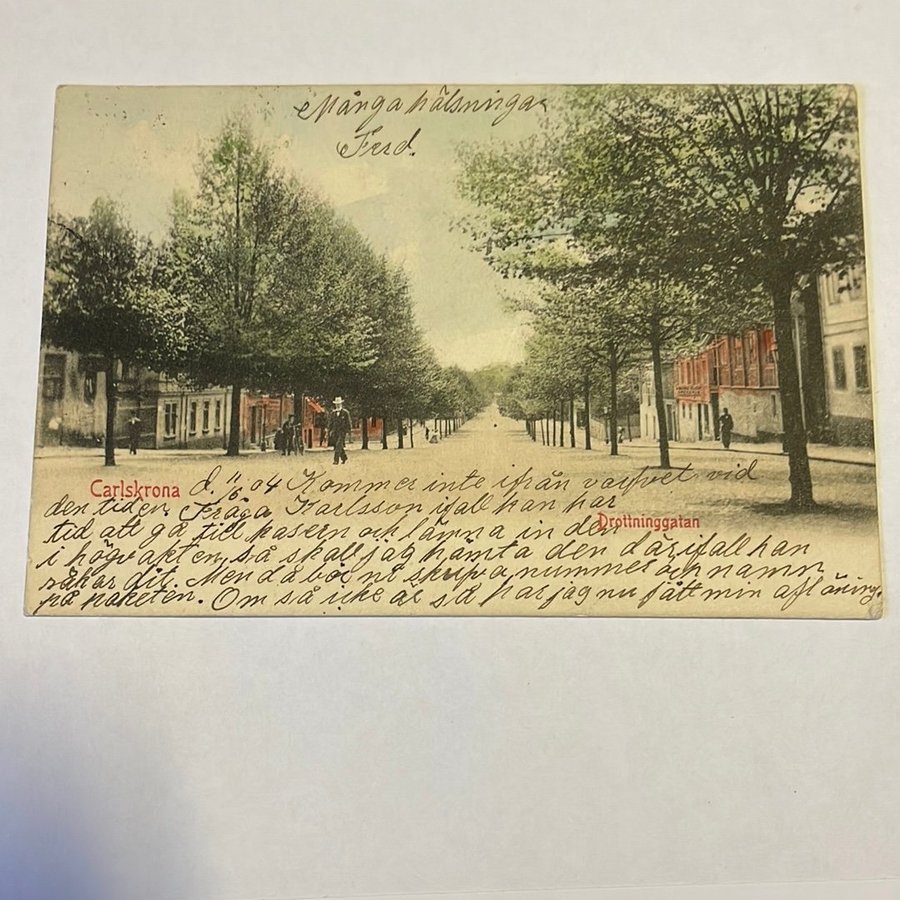 Många hälsningar
Ferd.
Carlskrona
d. 11/6. 04 Kommer inte ifrån varfvet vid
den tiden. Fråga Karlsson ifall han har
Drottninggatan
tid att gå till kasern och lämna in den
i högvakten, så skall jag hämta den där ifall han
råkar dit. Men då bör ni skrifva nummer och namn
på paketen. Om så icke är så har jag nu fått min aflöning.